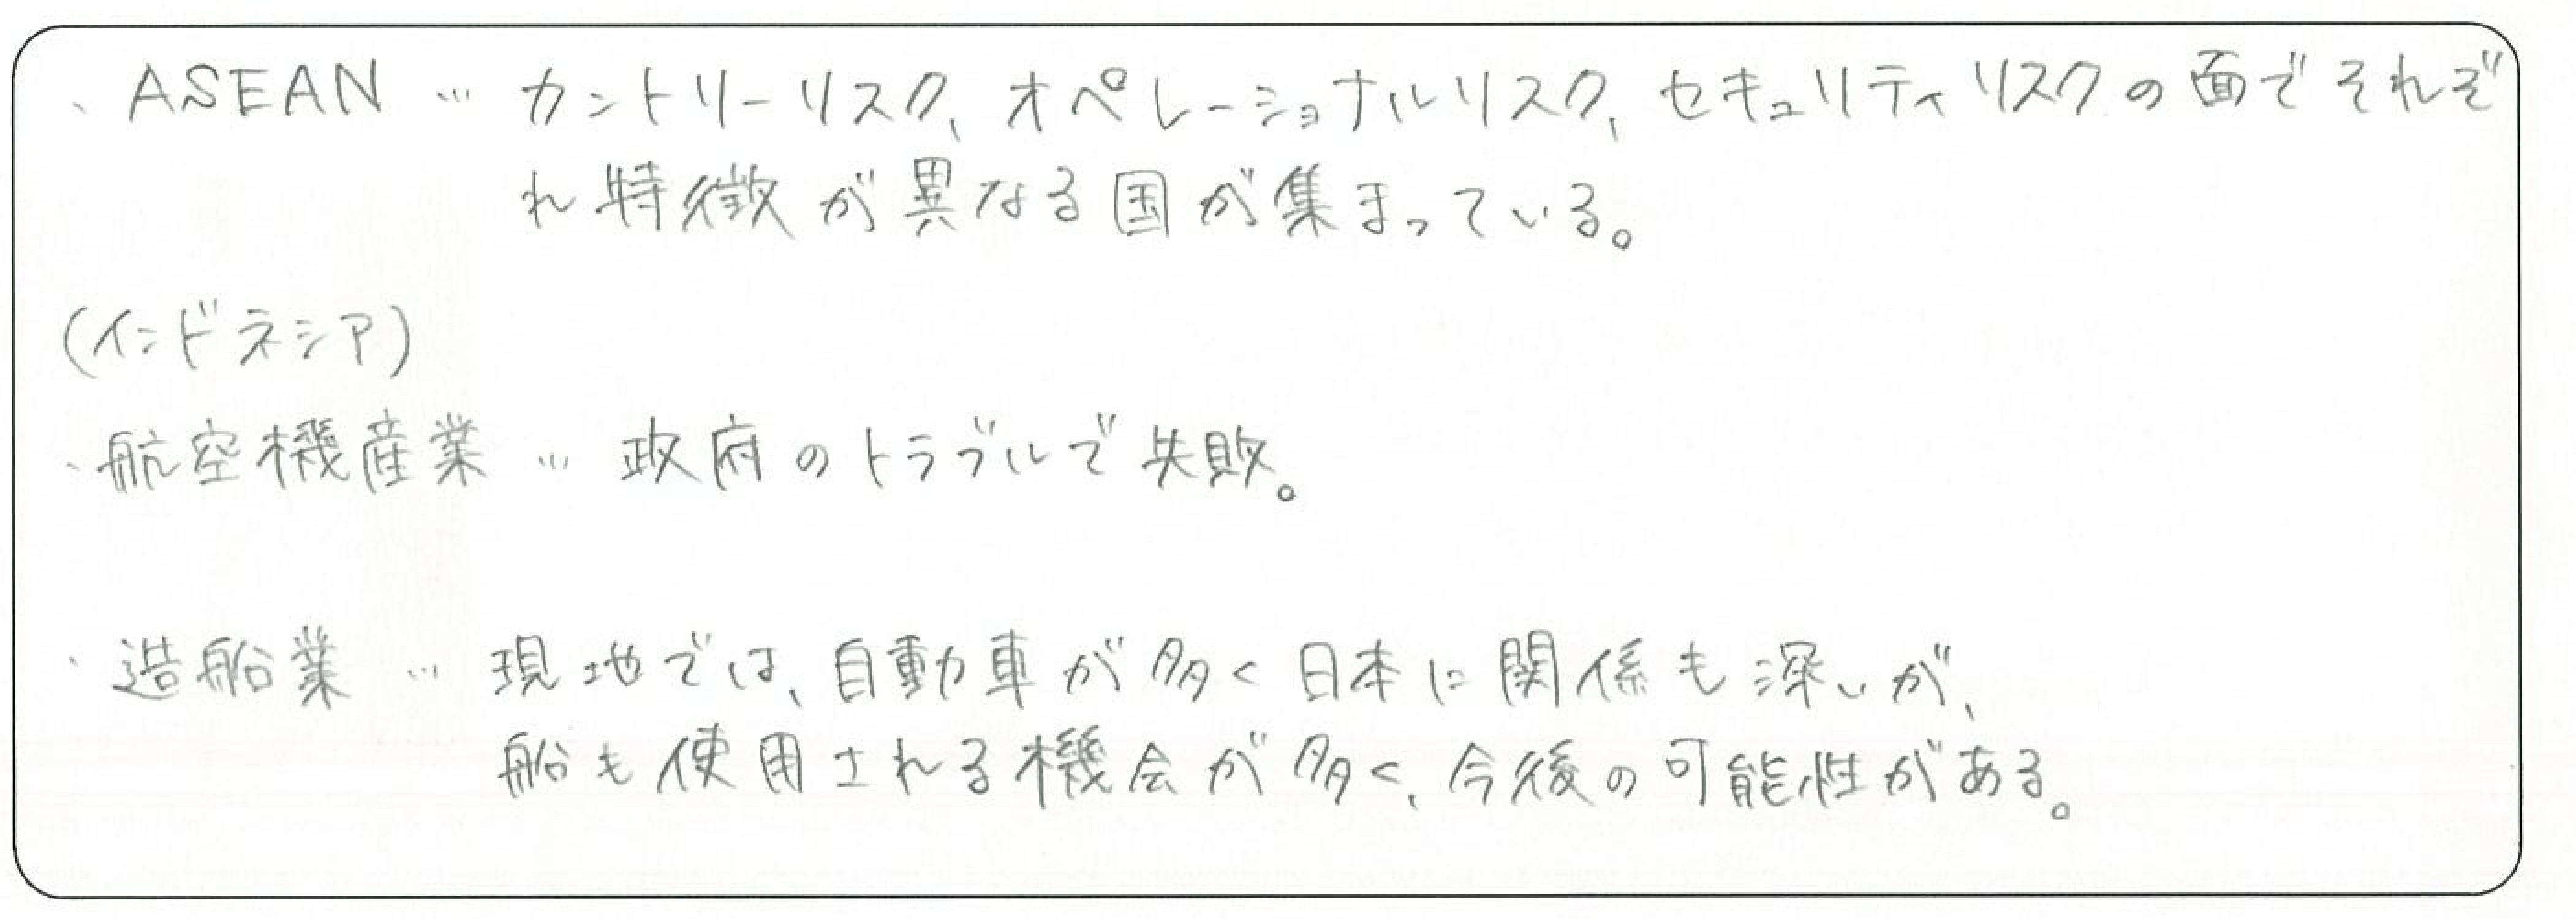 ・ASEAN … カントリーリスク、オペレーショナルリスク、セキュリティリスクの面でそれぞ
れ特徴が異なる国が集まっている。
(インドネシア)
・航空機産業 … 政府のトラブルで失敗。
・造船業 … 現地では、自動車が多く日本に関係も深いが、
船も使用される機会が多く、今後の可能性がある。